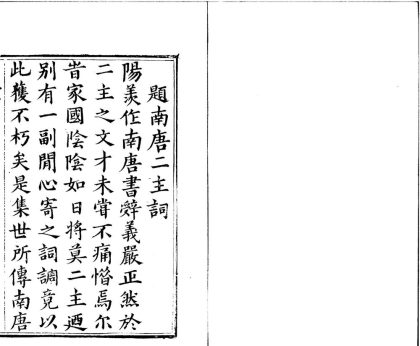 題南唐二主詞
陽羨作南唐書辭義嚴正然於
二主之文才未嘗不痛惜焉尔
昔家國陰陰如日將莫二主迺
別有一副閒心寄之詞調竟以
此獲不朽矣是集世所傳南唐